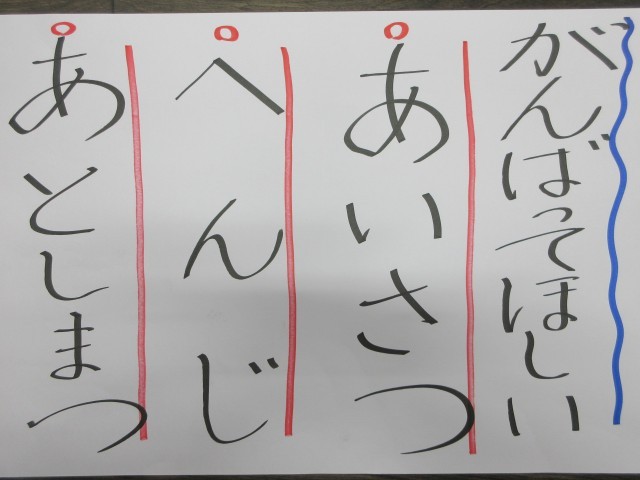 がんばってほしい
あいさつ
へんじ
あとしまつ